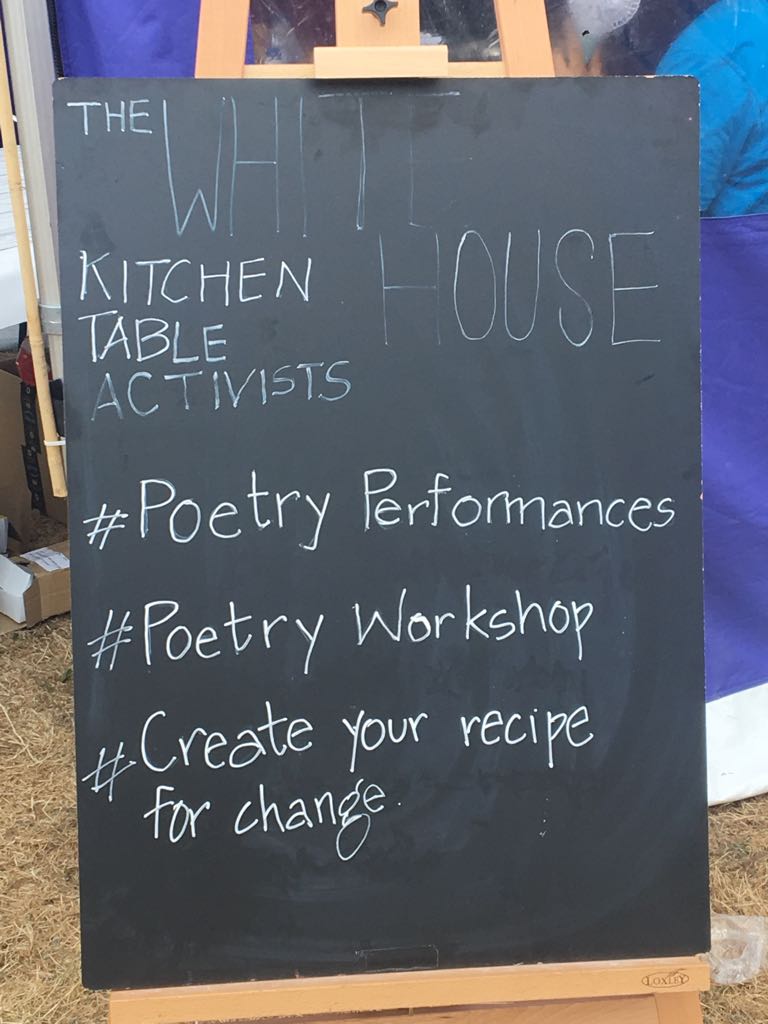 THE WHITE
HOUSE
KITCHEN
TABLE
ACTIVISTS
#Poetry Performances
#Poetry Workshop
#Create your recipe
for change.
LOXLEY